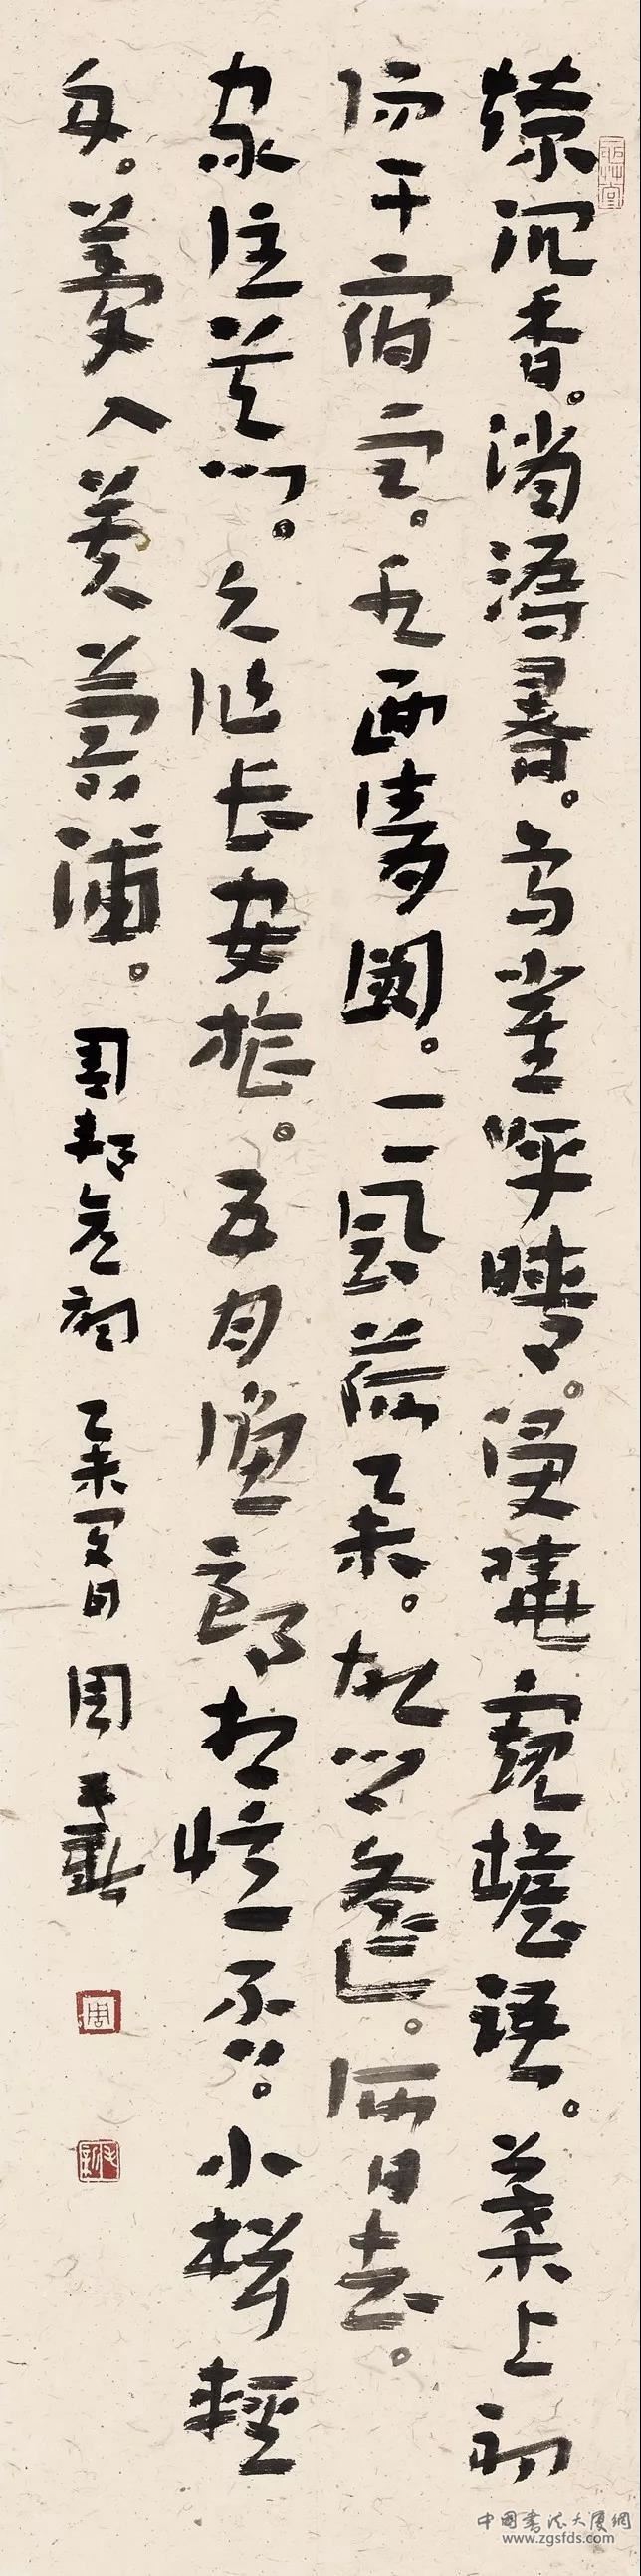 燎沉香。消溽暑。鳥雀呼晴。侵曉窺檐語。葉上初
陽干宿雨。水面清圓。一一風荷舉。故鄉遙。何日去。
家住吳門。久作長安旅。五月漁郎相憶否。小楫輕
舟。夢入芙蓉浦。周邦彥詞 乙未夏日 周
周
中国書法大厦網
www.zgsfds.com